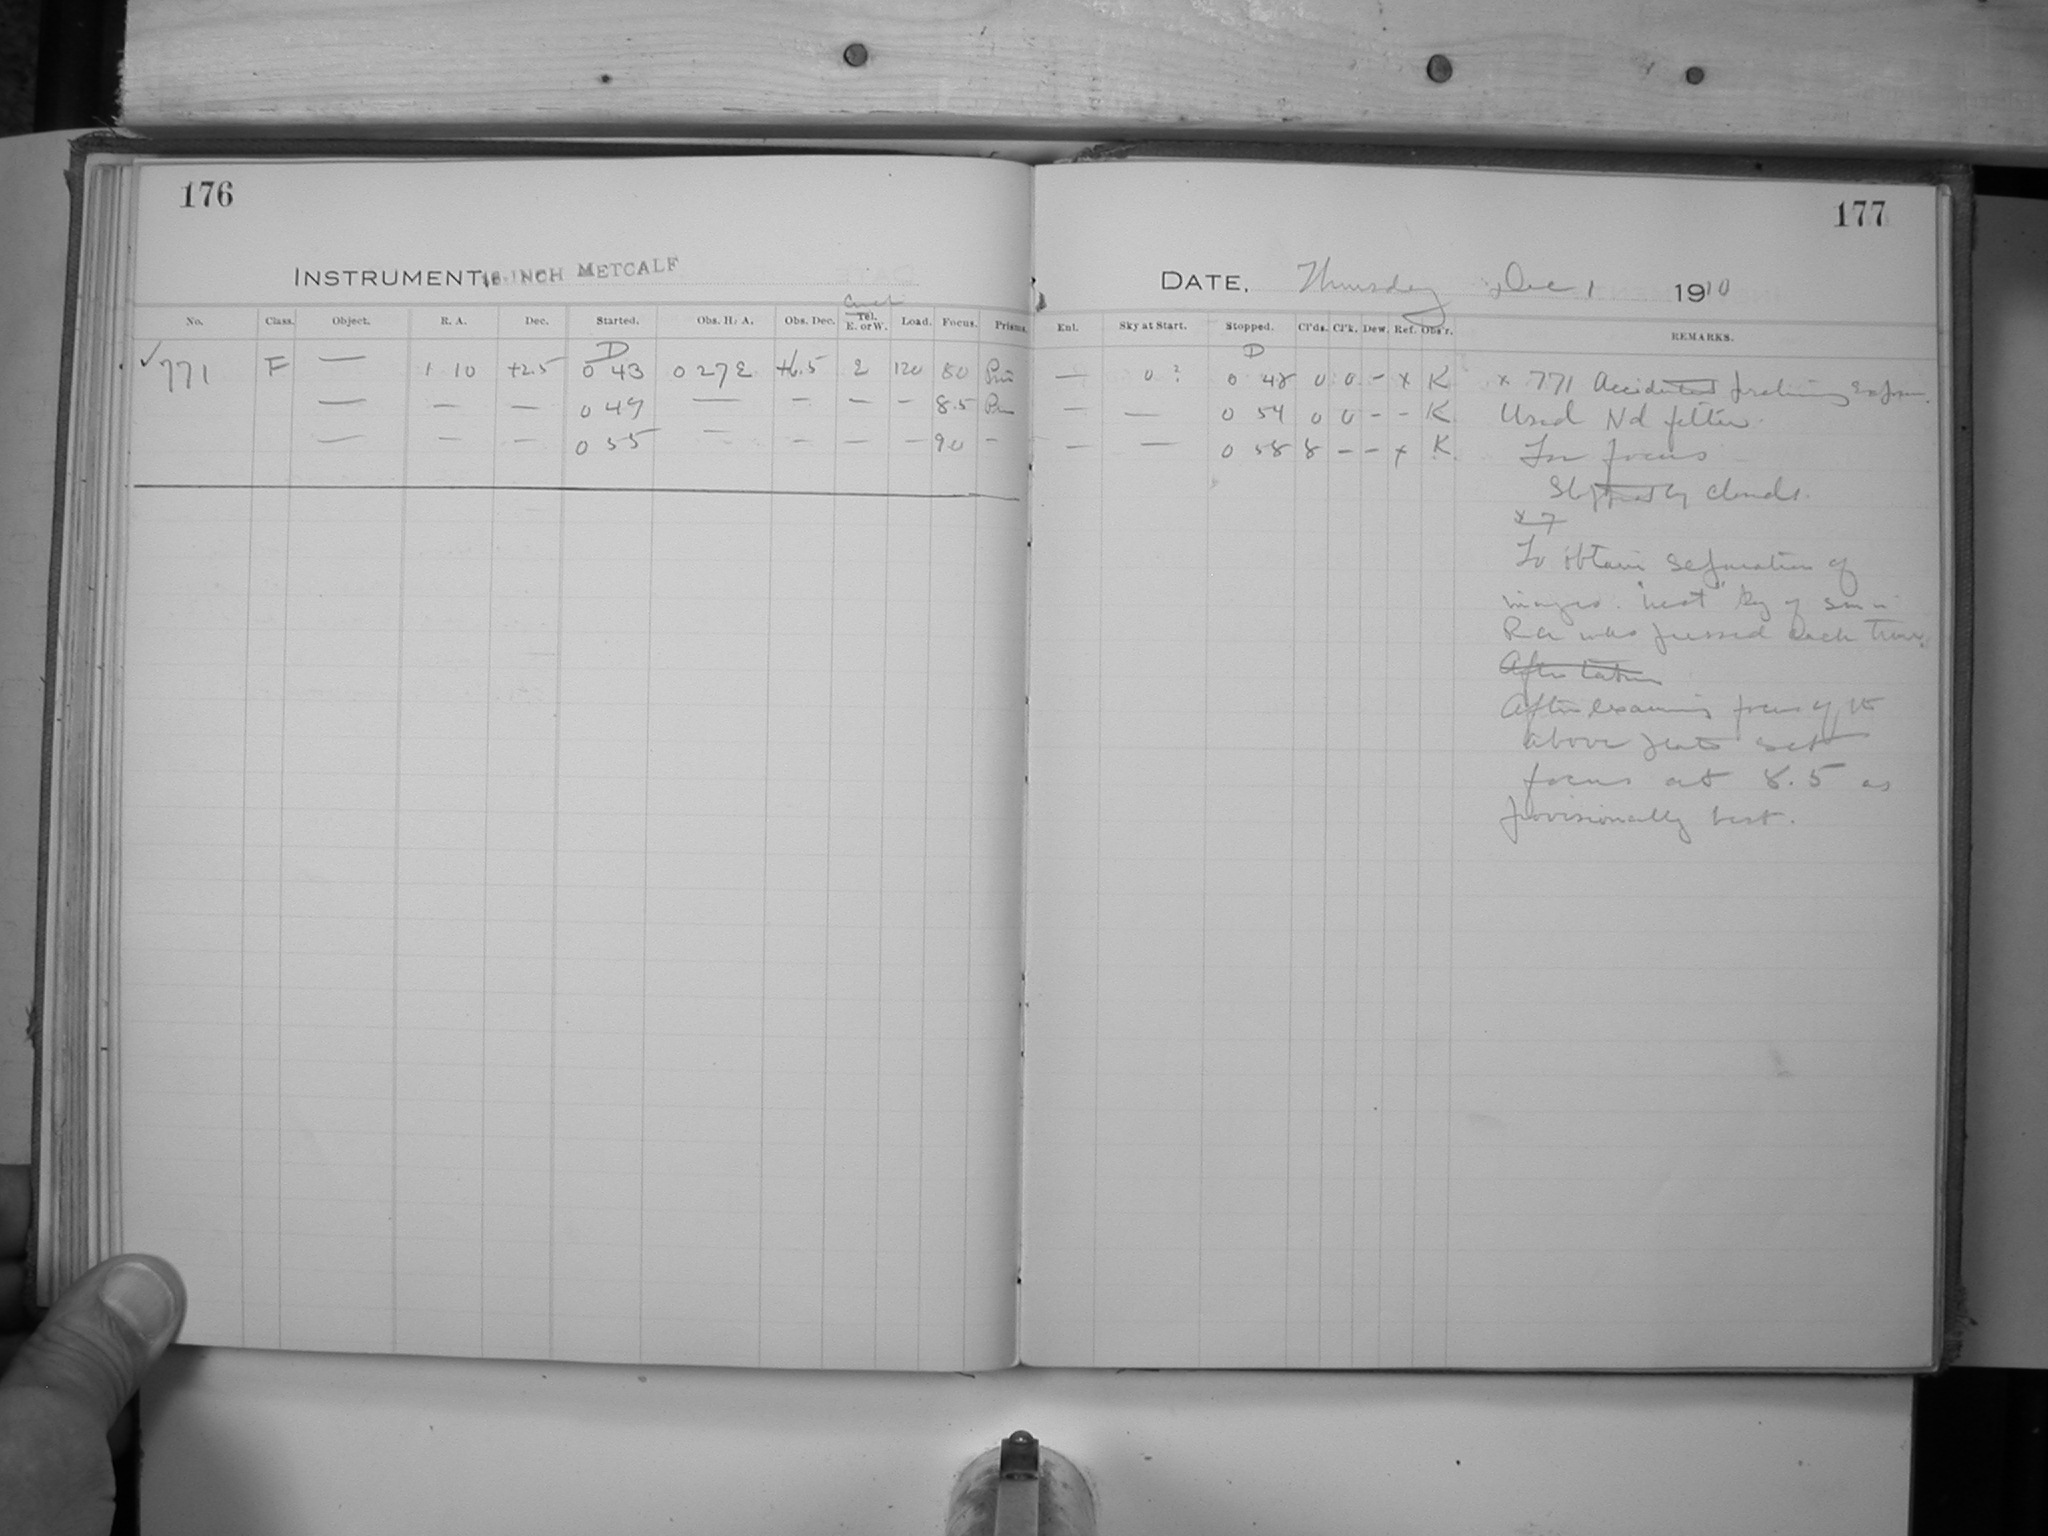 176
INSTRUMENT, 16-INCH METCALF
No. Class. Object. R. A. Dec. Started. Obs. H. A. Obs. Dec. Tel. E. or W. Load. Focus. Prisms.
D
✓771 F — 1 10 +2.5 0 43 0 27 E +6.5 E 120 80
— — — 0 49 — — — — 8.5
— — — 0 55 — — — — 90 —
177
DATE, Thursday Dec 1 1910
Enl. Sky at Start. Stopped. Cl'ds. Cl'k. Dew. Ref. Obs'r. REMARKS.
D
— 0? 0 48 0 0 - x K x 771
— — 0 54 0 0 - - K Used Nd filter
— — 0 58 8 - - x K. For focus
Stopped by clouds.
x 7
To obtain separation of
images. "west" key of
R a was pressed each time.
After
After examining focus of
above set
focus at 8.5 as
provisionally best.